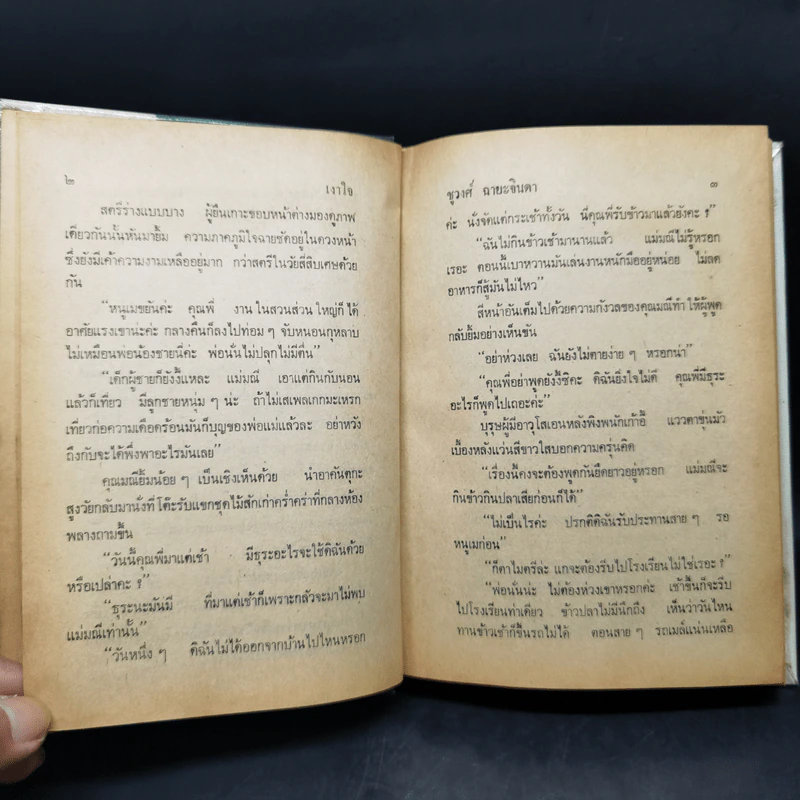 ๒
เงาใจ
สตรีร่างแบบบาง ผู้ยืนเกาะขอบหน้าต่างมองดูภาพ
เดียวกันนั้นหันมายิ้ม ความภาคภูมิใจฉายชัดอยู่ในดวงหน้า
ซึ่งยังมีเค้าความงามเหลืออยู่มาก กว่าสตรีในวัยสี่สิบเศษด้วย
กัน
“หนูเมขยันค่ะ คุณพี่ งานในสวนส่วนใหญ่ก็ได้
อาศัยแรงเขาน่ะค่ะ กลางคืนก็ลงไปท่อม ๆ จับหนอนกุหลาบ
ไม่เหมือนพ่อน้องชายนี่ค่ะ พ่อนั่นไม่ปลุกไม่มีตื่น”
“เด็กผู้ชายก็ยังงี้แหละ แม่มณี เอาแต่กินกับนอน
แล้วก็เที่ยว มีลูกชายหนุ่ม ๆ น่ะ ถ้าไม่เสเพลเกกมะเหรก
เที่ยวก่อความเดือดร้อนมันก็บุญของพ่อแม่แล้วละ อย่าหวัง
ถึงกับจะได้พึ่งพาอะไรมันเลย”
คุณมณียิ้มน้อย ๆ เป็นเชิงเห็นด้วย นำอาคันตุกะ
สูงวัยกลับมานั่งที่โต๊ะรับแขกชุดไม้สักเก่าคร่ำคร่าที่กลางห้อง
พลางถามขึ้น
“วันนี้คุณพี่มาแต่เช้า มีธุระอะไรจะใช้ดิฉันด้วย
หรือเปล่าคะ ?”
“ธุระนะมันมี ที่มาแต่เช้าก็เพราะกลัวจะมาไม่พบ
แม่มณีเท่านั้น”
“วันหนึ่ง ๆ ดิฉันไม่ได้ออกจากบ้านไปไหนหรอก
ชูวงศ์ ฉายะจินดา
๓
ค่ะ นั่งจัดแต่กระเช้าทั้งวัน นี่คุณพี่รับข้าวมาแล้วยังคะ ?”
“ฉันไม่กินข้าวเช้ามานานแล้ว แม่มณีไม่รู้หรอก
เรอะ ตอนนี้เบาหวานมันเล่นงานหนักมืออยู่หน่อย ไม่ลด
อาหารก็สู้มันไม่ไหว”
สีหน้าอันเต็มไปด้วยความกังวลของคุณมณีทำให้ผู้พูด
กลับยิ้มอย่างเห็นขัน
“อย่าห่วงเลย ฉันยังไม่ตายง่าย ๆ หรอกน่า”
“คุณพี่อย่าพูดยังงี้ซิคะ ดิฉันยิ่งใจไม่ดี คุณพี่มีธุระ
อะไรก็พูดไปเถอะค่ะ”
บุรุษผู้มีอาวุโสเอนหลังพิงพนักเก้าอี้ แววตาขุ่นมัว
เบื้องหลังแว่นสีขาวใสบอกความครุ่นคิด
“เรื่องนี้คงจะต้องพูดกันยืดยาวอยู่หรอก แม่มณีจะ
กินข้าวกินปลาเสียก่อนก็ได้”
“ไม่เป็นไรค่ะ ปรกติดิฉันรับประทานสาย ๆ รอ
หนูเมก่อน”
“ก็ตาไมตรีล่ะ แกจะต้องรีบไปโรงเรียนไม่ใช่เรอะ ?”
“พ่อนั่นน่ะ ไม่ต้องห่วงเขาหรอกค่ะ เช้าขึ้นก็จะรีบ
ไปโรงเรียนท่าเดียว ข้าวปลาไม่มีนึกถึง เห็นว่าวันไหน
ทานข้าวเช้าก็ขึ้นรถไม่ได้ ตอนสาย ๆ รถเมล์แน่นเหลือ